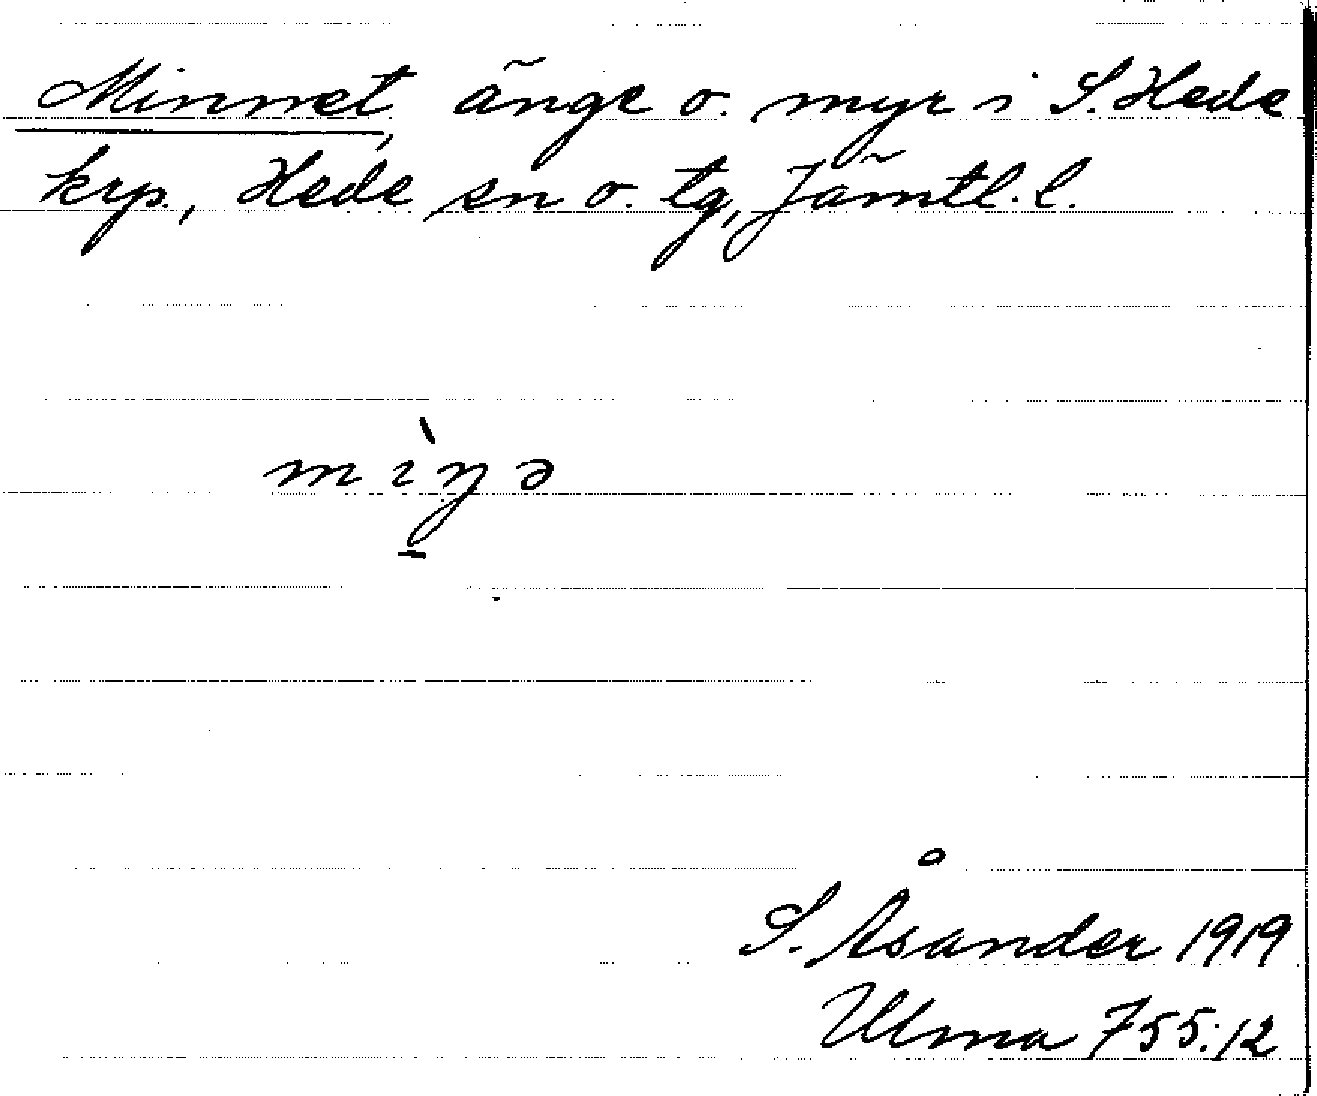 Minnet, änge o. myr i S. Hede
krp., Hede sn o. tg, Jämtl. l.
mìn̠ə
S. Åsander 1919
Ulma 755:12